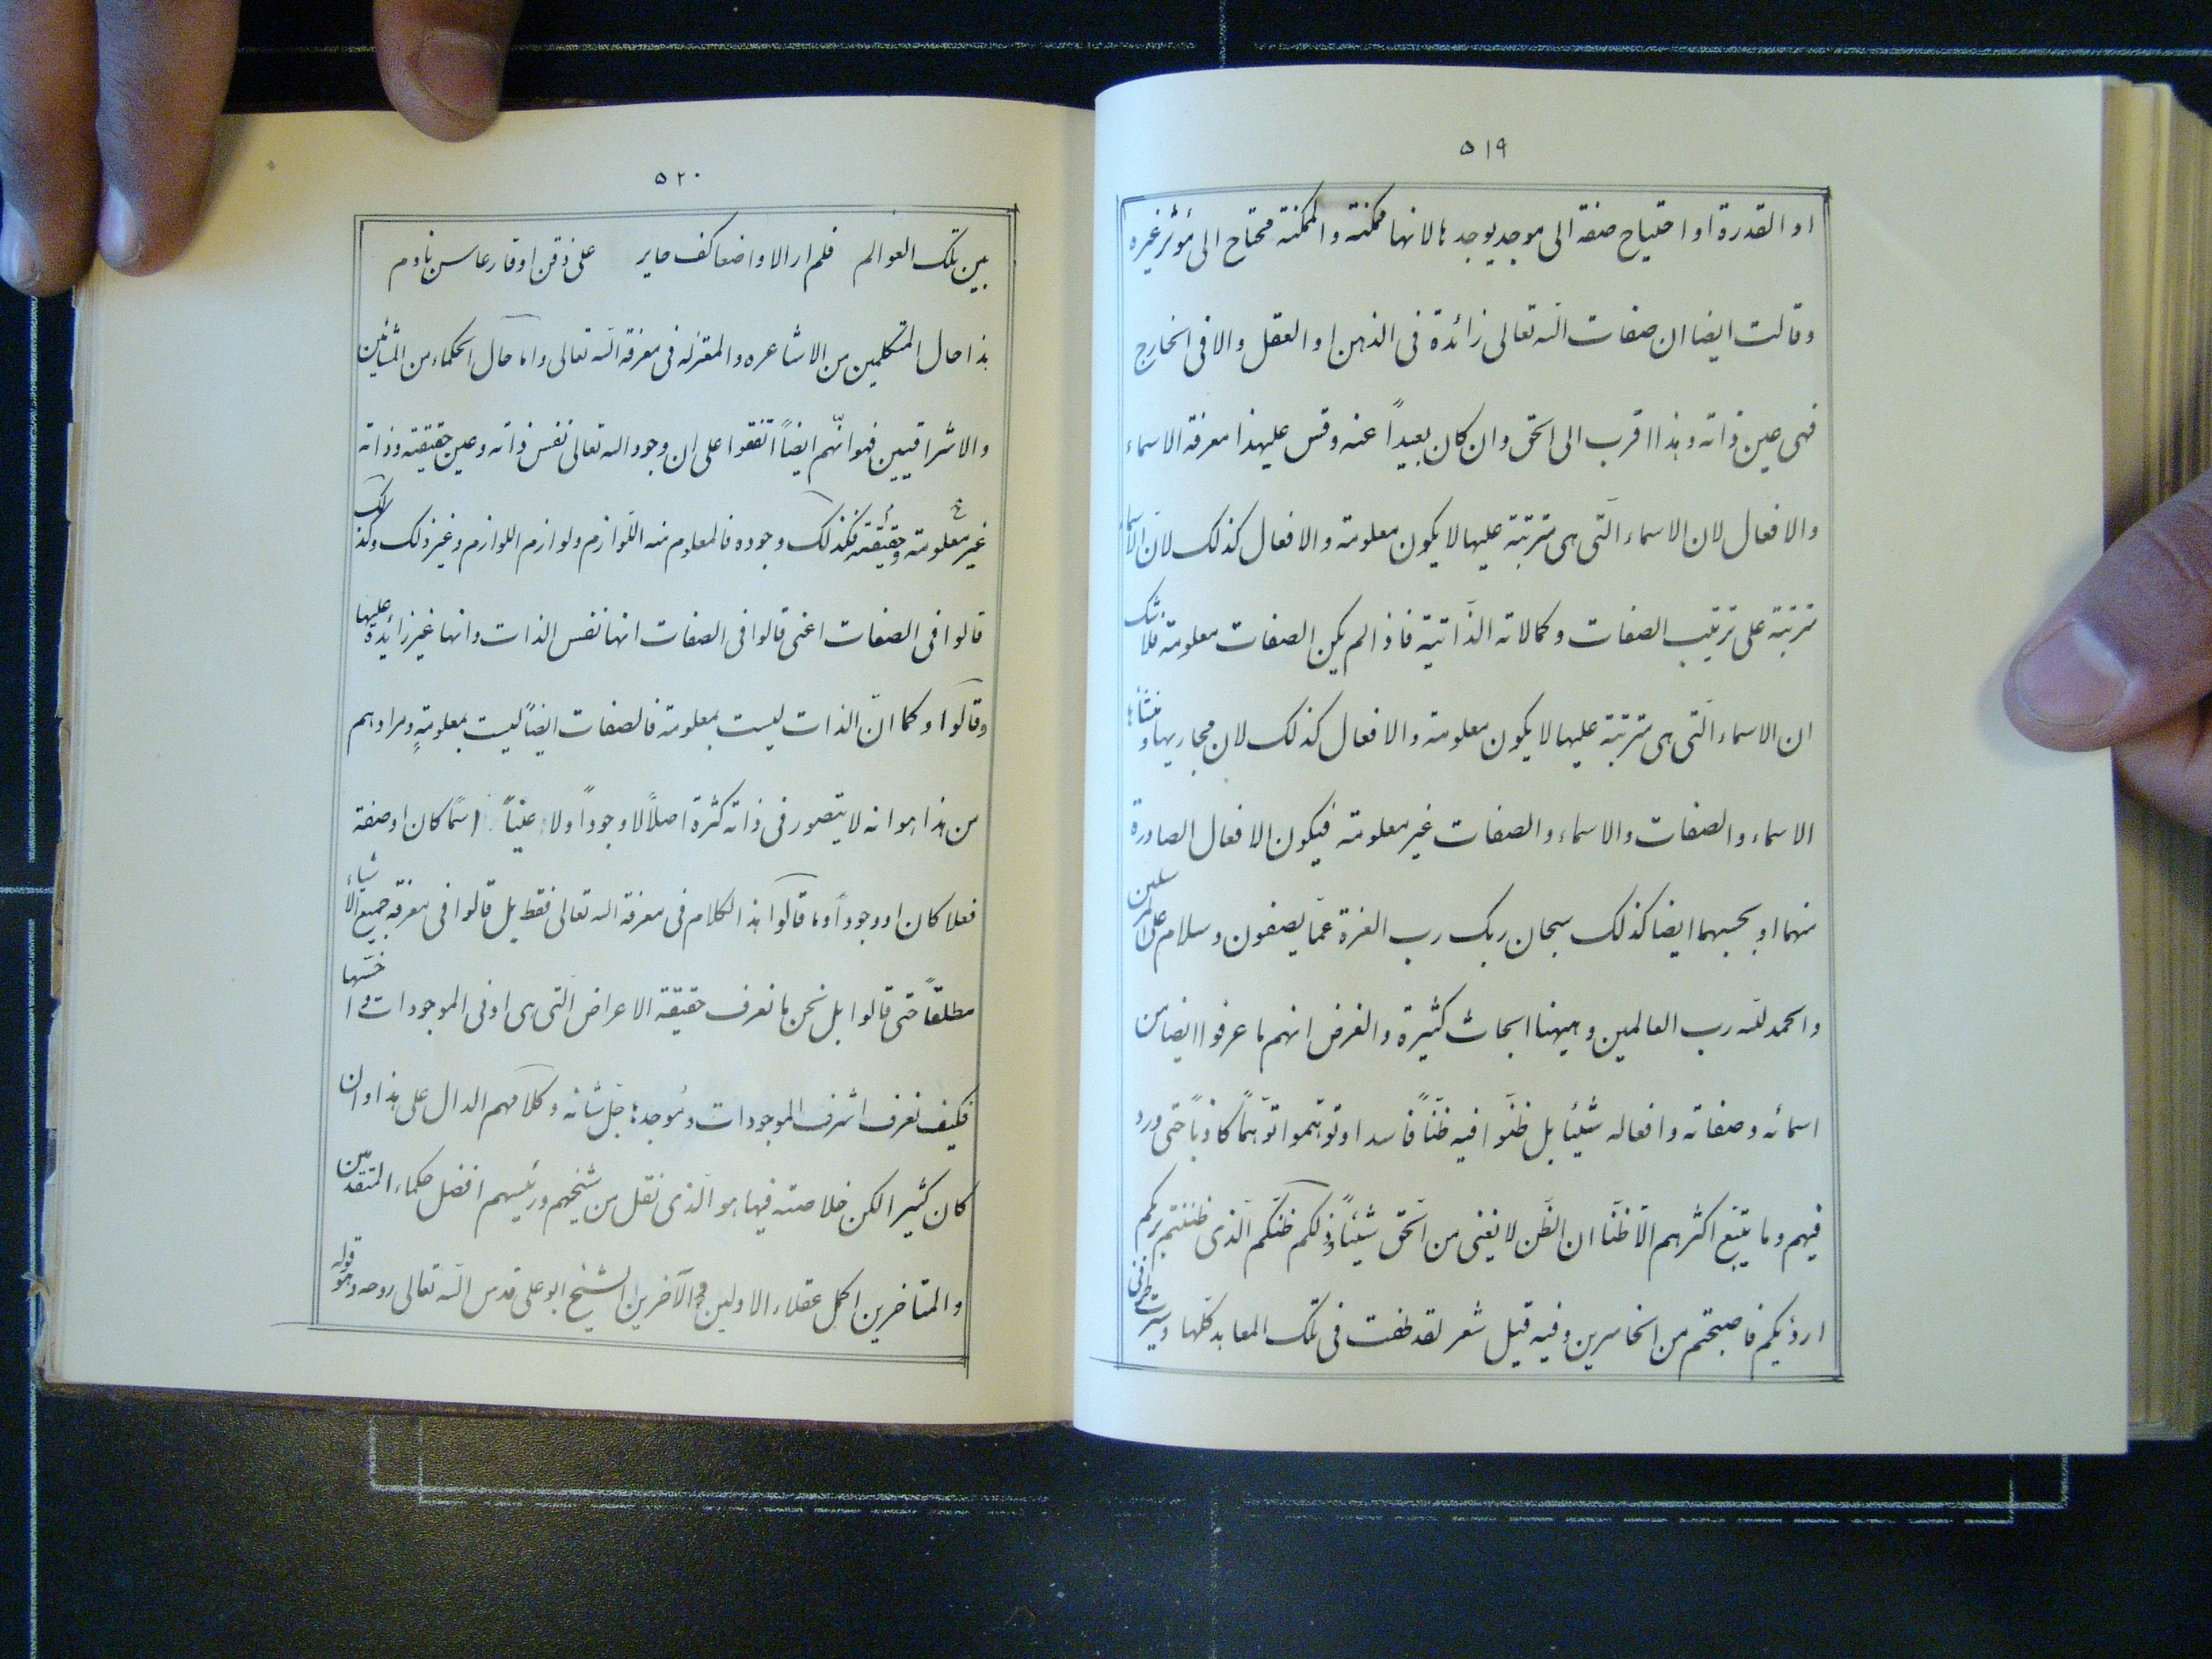 ٥١٩
او القدرة او احتياج صفة الى موجد يوجدها لانها ممكنة والممكنة محتاج الى مؤثر غيره
وقالت ايضا ان صفات الله تعالى زائدة فى الذهن او العقل والا فى الخارج
فهى عين ذاته وهذا اقرب الى الحق وان كان بعيداً عنه وقس عليهذا معرفة الاسماء
والافعال لان الاسماء الّتى هى مترتبة عليها لايكون معلومة والافعال كذلك لانّ الاسماء
مترتبة على ترتيب الصفات وكمالاته الذّاتية فاذا لم يكن الصفات معلومة فلا شك
ان الاسماء الّتى هى مترتبة عليها لايكون معلومة والافعال كذلك لان مجاريها ومنشأها
الاسماء والصفات والاسماء والصفات غير معلومة فيكون الافعال الصادرة
منهما او بحسبهما ايضا كذلك سبحان ربك رب العزة عمّا يصفون وسلام على المرسلين
والحمد لله رب العالمين وهيهنا ابحاث كثيرة والغرض انهم ما عرفوا ايضا من
اسمائه وصفاته وافعاله شيئا بل ظنّوا فيه ظنّاً فاسدا وتوهّموا توهّماً كاذباً حتى ورد
فيهم وما يتبع اكثرهم الّا ظنّا ان الظّن لا يغنى من الحق شيئاً وذلكم ظنّكم الّذى ظننتم بربكم
ارديكم فاصبحتم من الخاسرين وفيه قيل شعر لقد طفت فى تلك المعاهد كلّها وسيّرت طرفى
٥٢٠
بين تلك العوالم فلم ار الا واضعا كف حاير على ذقن او قارعا سن نادم
هذا حال المتكلمين من الاشاعره والمعتزله فى معرفة الله تعالى واما حال الحكماء من المشائين
والاشراقيين فهو انّهم ايضاً اتفقوا على ان وجود الله تعالى نفس ذاته وعين حقيقته وذاته
غير معلومة وحقيقته فكذلك وجوده فالمعلوم منه اللّوازم ولوازم اللوازم وغير ذلك وكذلك
قالوا فى الصفات اعنى قالوا فى الصفات انها نفس الذات وانها غير زائدة عليها
وقالوا وكما انّ الذات ليست بمعلومة فالصفات ايضاً ليست بمعلومةٍ ومرادهم
من هذا هو انه لا يتصور فى ذاته كثرة اصلاً لا وجوداً ولا عيناً اسمًا كان او صفة
فعلا كان او وجوداً وما قالوا هذا الكلام فى معرفة الله تعالى فقط بل قالوا فى معرفة جميع الاشياء
مطلقاً حتى قالوا بل نحن ما نعرف حقيقة الاعراض الّتى هى ادنى الموجودات واخسّها
فكيف نعرف اشرف الموجودات وموجدها جلّ شانه وكلامهم الدال على هذا وان
كان كثيرا لكن خلاصته فيها هو الّذى نقل من شيخهم ورئيسهم افضل حكماء المتقدمين
والمتاخرين اكمل عقلاء الاولين والآخرين الشيخ ابو على قدس الله تعالى روحه وهو قوله